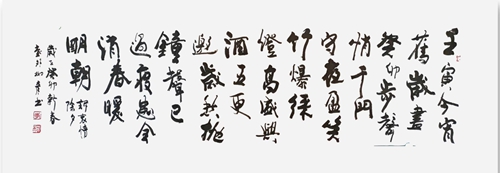 壬寅今宵
舊歲盡
癸卯步聲
悄千門
守夜盈笑
竹爆綠
燈高盛興
酒五更
邀歲
鐘聲已
過夜
消春暖
明朝
除夕
歲在癸卯新春